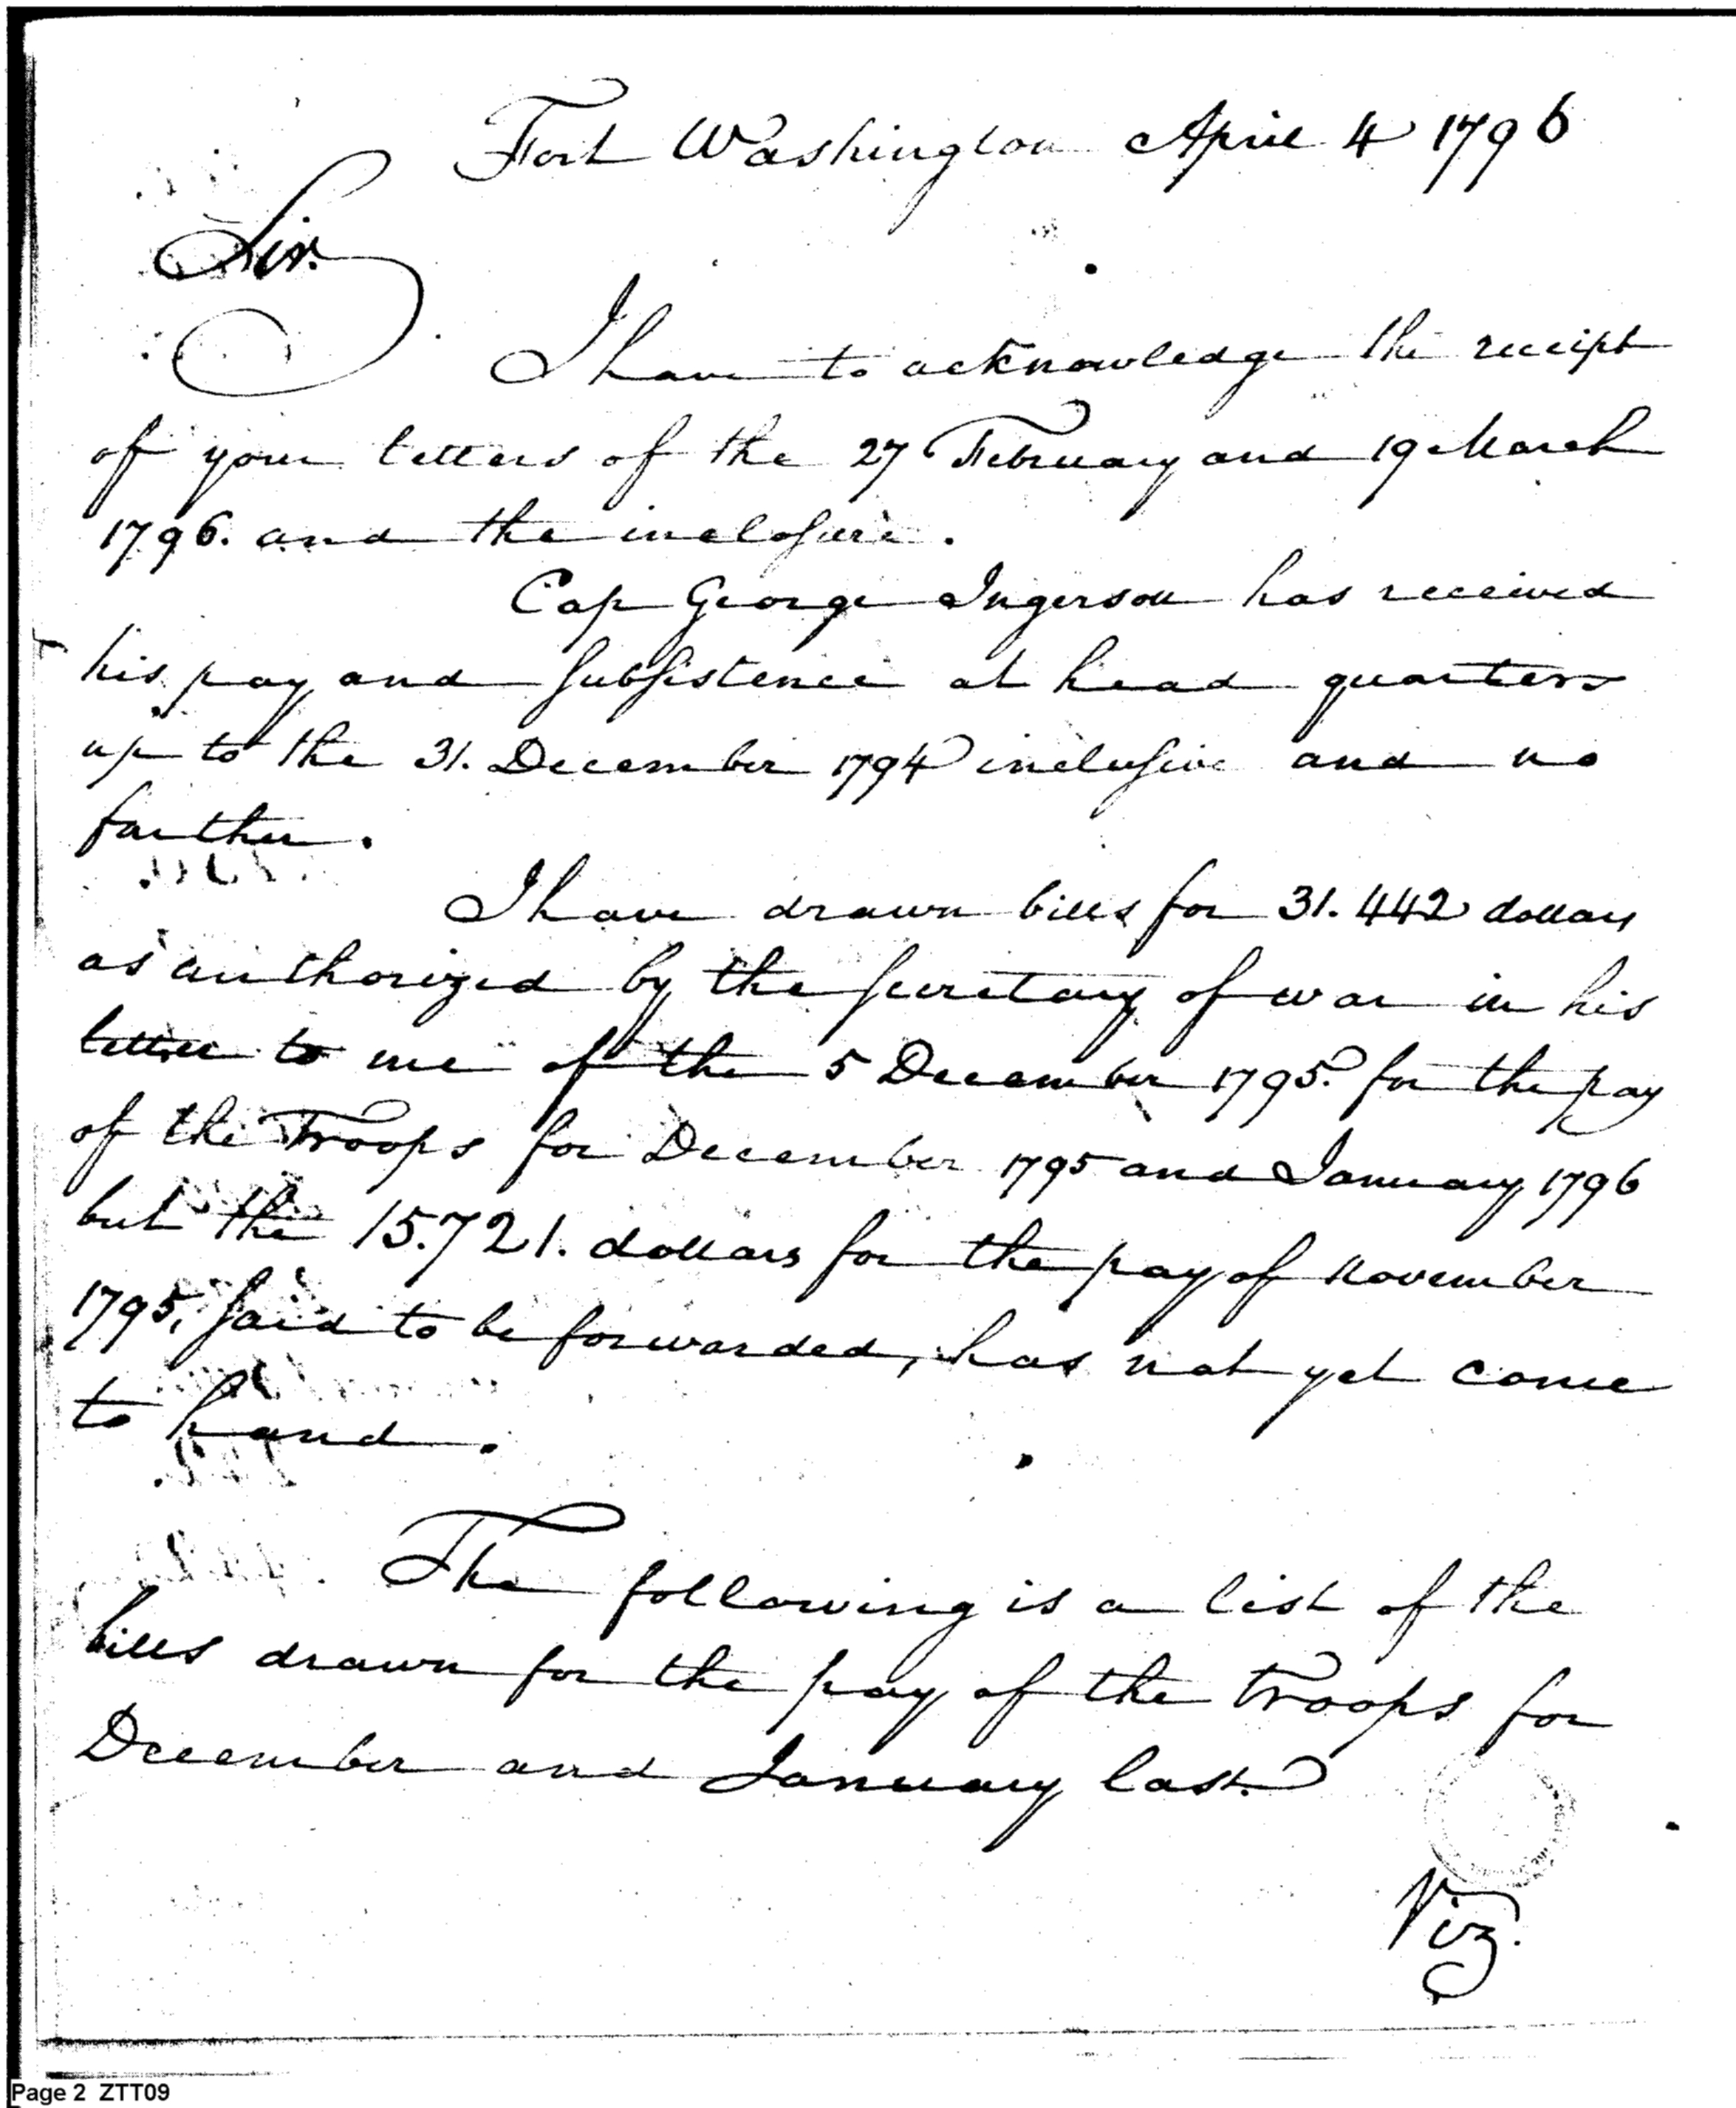 Fort Washington April 4 1796
Sir.
I have to acknowledge the receipt
of your letters of the 27 February and 19 March
1796. and the inclosure.
Cap George Ingersoll has received
his pay and subsistence at head quarters
up to the 31. December 1794 inclusive and no
farther.
I have drawn bills for 31.442 dollars
as authorized by the secretary of war in his
letter to me of the 5 December 1795. for the pay
of the Troops for December 1795 and January 1796
but the 15.721. dollars for the pay of november
1795, said to be forwarded, has not yet come
to hand.
The following is a list of the
bills drawn for the pay of the troops for
December and January last.
Viz.
Page 2 ZTT09